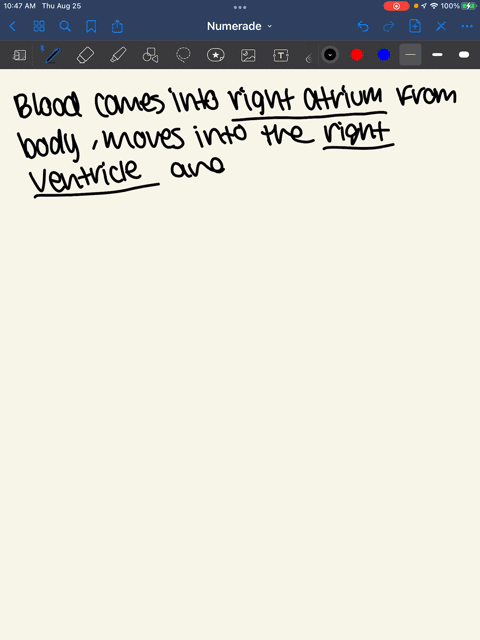 10:47 AM Thu Aug 25
100%
Numerade
Blood comes into right atrium from
body, moves into the right
ventricle and